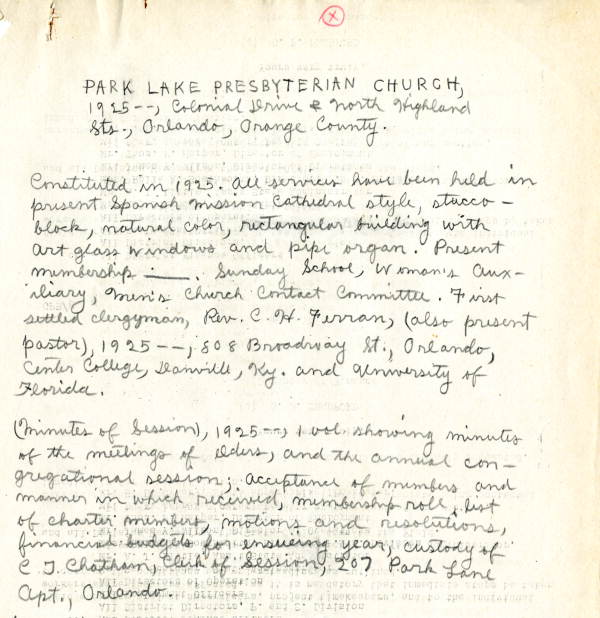 PARK LAKE PRESBYTERIAN CHURCH,
1925--, Colonial Drive & North Highland
Sts., Orlando, Orange County.
Constituted in 1925. All services have been held in
present Spanish Mission Cathedral style, stucco-
block, natural color, rectangular building with
art glass windows and pipe organ. Present
membership ____. Sunday School, Woman's Aux-
iliary, Men's Church Contact Committee. First
settled clergyman, Rev. C. H. Ferran, (also present
pastor), 1925--; 808 Broadway St., Orlando,
Center College, Danville, Ky. and University of
Florida.
(Minutes of Session), 1925--, 1 vol. showing minutes
of the meetings of Elders, and the annual con-
gregational session; acceptance of members and
manner in which received, membership roll, list
of charter members, motions and resolutions,
financial budgets for ensueing year, custody of
C J. Chatham, Clerk of Session, 207 Park Lane
Apt., Orlando.